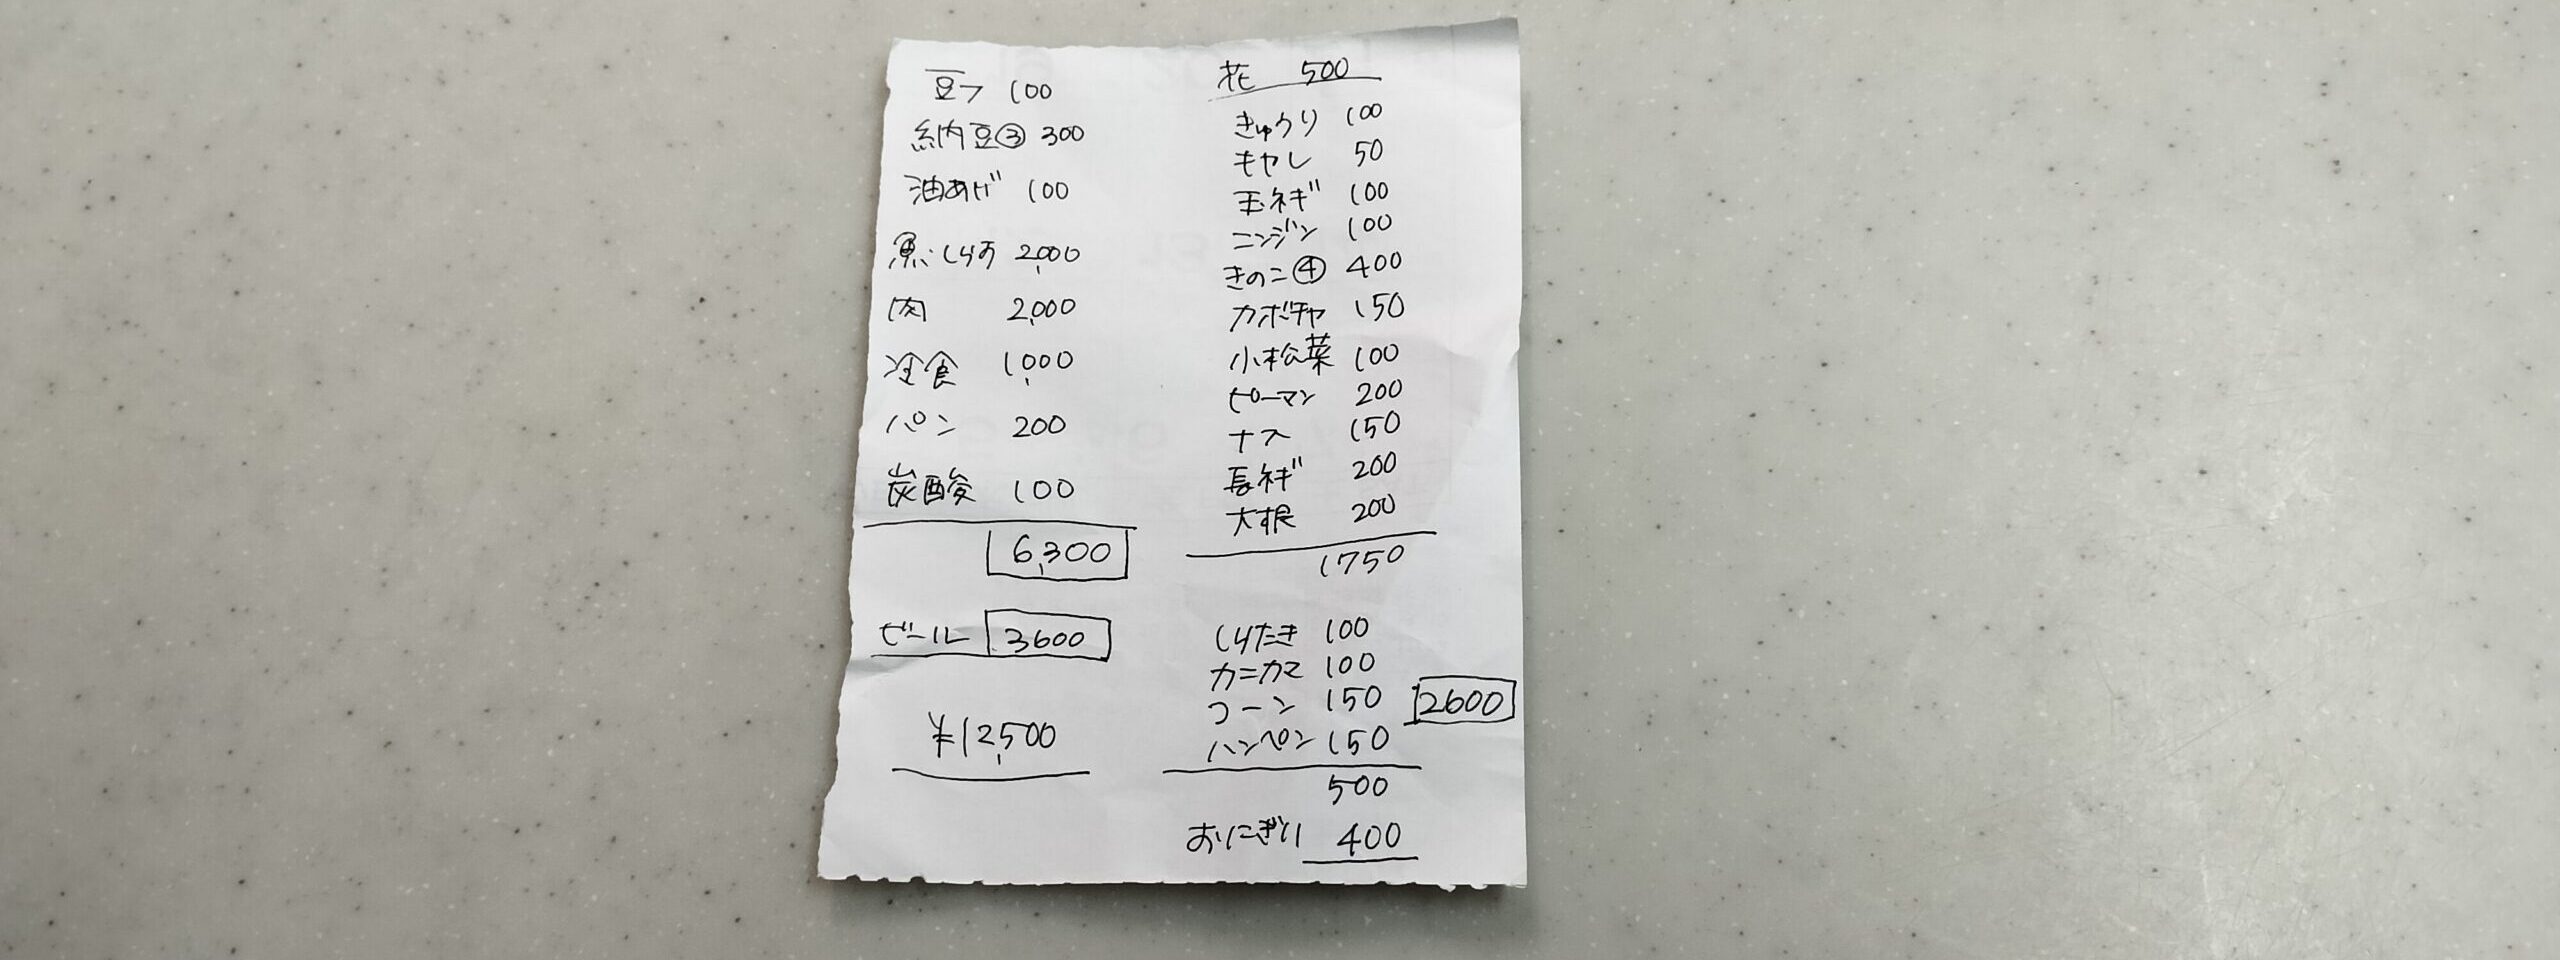 豆フ 100
納豆③ 300
油あげ 100
魚・しらす 2,000
肉 2,000
冷食 1,000
パン 200
炭酸 100
6,300
ビール 3600
¥12,500
花 500
きゅうり 100
モヤし 50
玉ネギ 100
ニンジン 100
きのこ④ 400
カボチャ 150
小松菜 100
ピーマン 200
ナス 150
長ネギ 200
大根 200
1750
しらたき 100
カニカマ 100
コーン 150
2600
ハンペン 150
500
おにぎり 400